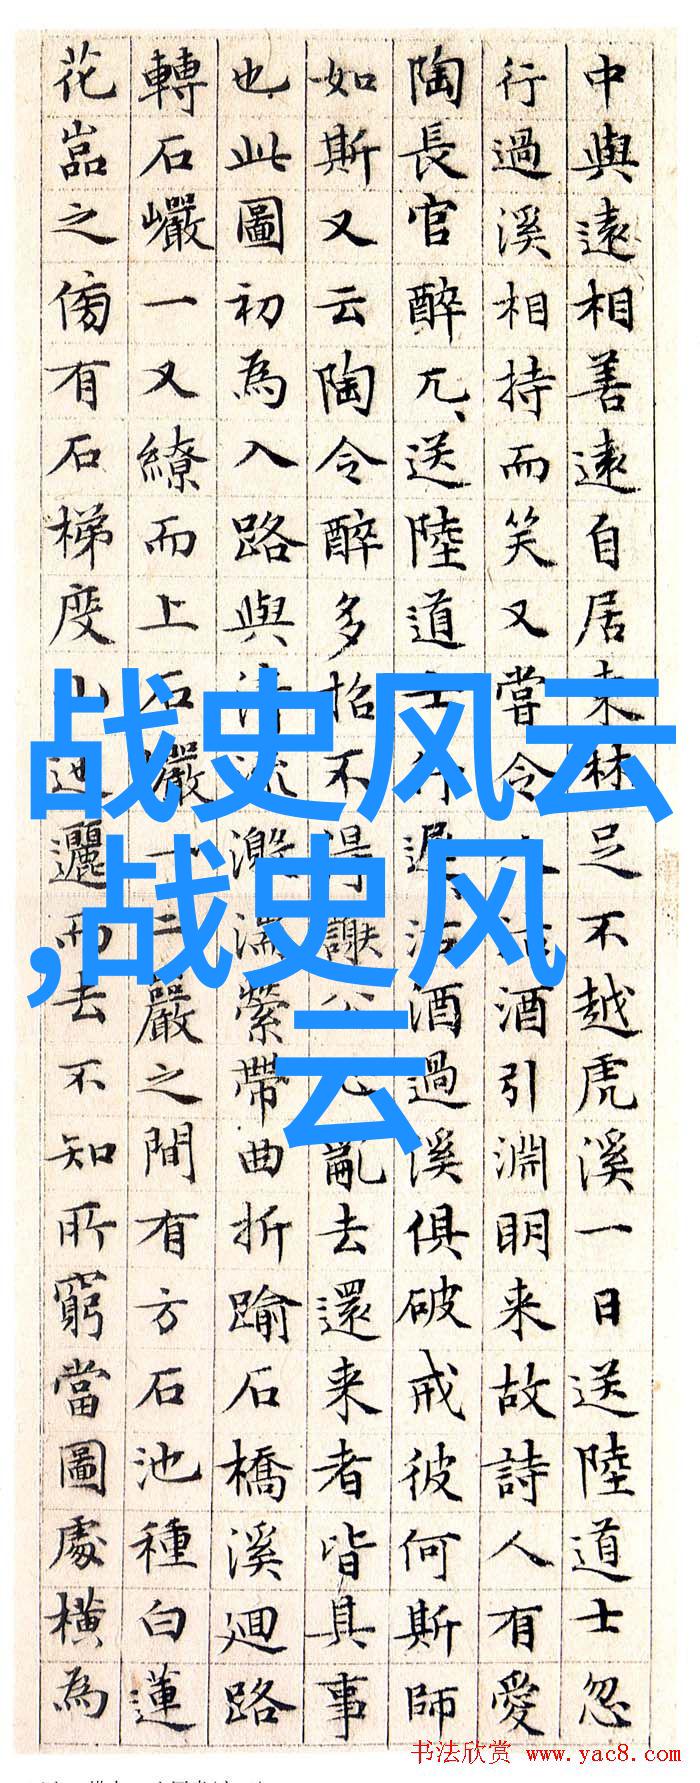 中與遠相善遠自居東林足不越虎溪一日送陸道士忽
行過溪相持而笑又嘗令人沽酒引淵明来故詩人有愛
陶長官醉兀、送陸道士行遲、沽酒過溪俱破戒彼何斯師
如斯又云陶令醉多招不得謝公心亂去還来者皆具事
也此圖初為入路與清流激湍縈帶曲折踰石橋溪廻路
轉石巖一又繚而上石巖一二巖之間有方石池種白蓮
花嵓之傍有石梯度山迤邐而去不知所窮當圖處橫為
战史风云
,战史风
云
书法欣赏 www.yac8.com